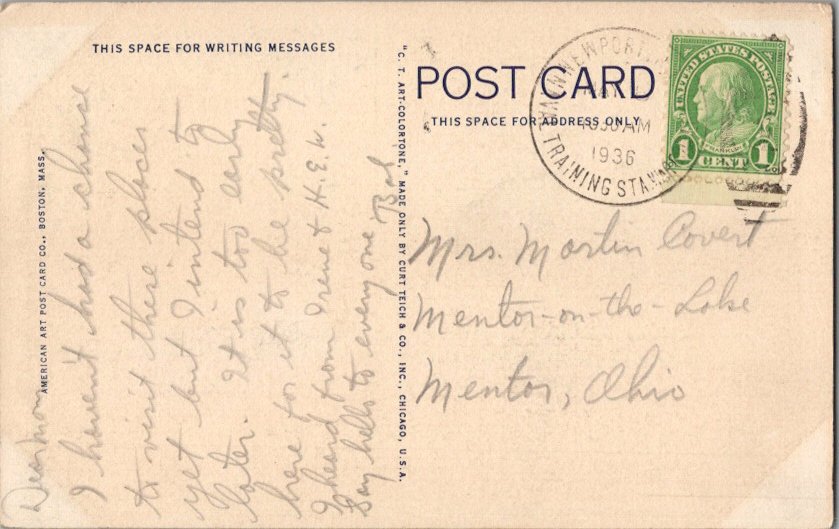 THIS SPACE FOR WRITING MESSAGES
Dear Mom,
I haven't had a chance
to visit these places
yet but I intend to
later. It is too early
here for it to be pretty.
I heard from Irene & H.E.W.
Say hello to everyone
Bob
AMERICAN ART POST CARD CO., BOSTON, MASS.
"C. T. ART-COLORTONE," MADE ONLY BY CURT TEICH & CO., INC., CHICAGO, U.S.A.
POST CARD
THIS SPACE FOR ADDRESS ONLY
NEWPORT
AM
1936
TRAINING STA
UNITED STATES POSTAGE
FRANKLIN
1 CENT 1
Mrs. Martin Covert
Mentor-on-the-Lake
Mentor, Ohio